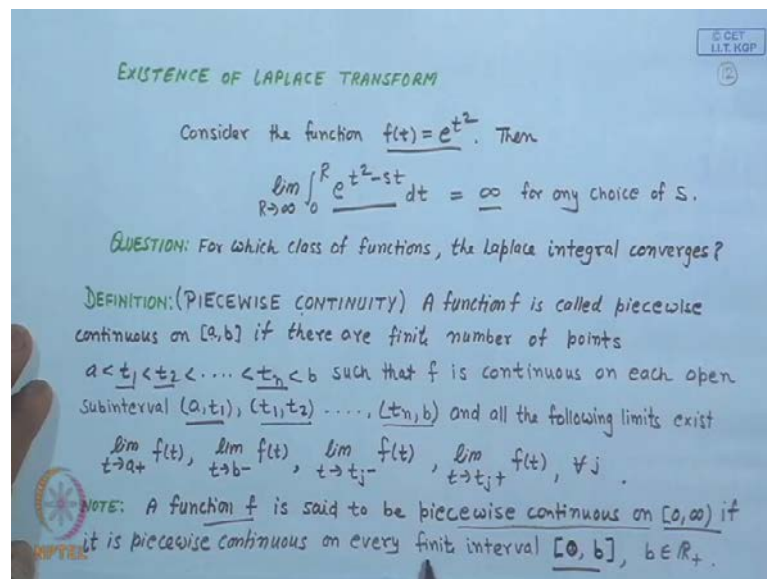 © CET
I.I.T. KGP
12
EXISTENCE OF LAPLACE TRANSFORM
Consider the function f(t) = e^{t^2}. Then
lim_{R→∞} ∫_0^R e^{t^2-st} dt = ∞ for any choice of s.
QUESTION: For which class of functions, the Laplace integral converges?
DEFINITION: (PIECEWISE CONTINUITY) A function f is called piecewise
continuous on [a,b] if there are finite number of points
a < t_1 < t_2 < .... < t_n < b such that f is continuous on each open
subinterval (a,t_1), (t_1,t_2) ...., (t_n,b) and all the following limits exist
lim_{t→a+} f(t), lim_{t→b-} f(t), lim_{t→t_j-} f(t), lim_{t→t_j+} f(t), ∀ j.
NOTE: A function f is said to be piecewise continuous on [0,∞) if
it is piecewise continuous on every finit interval [0, b], b ∈ R_+.
NPTEL